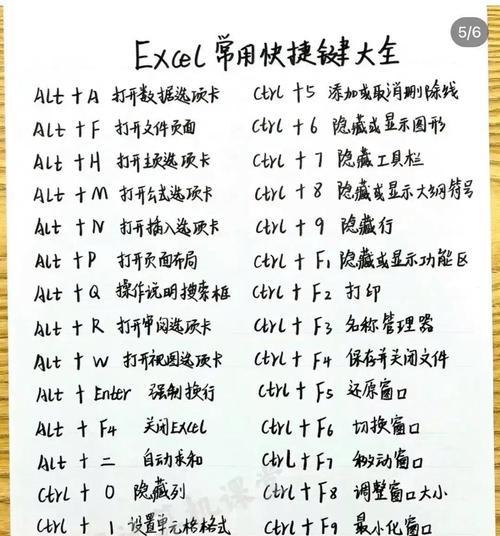 5/6
Excel 常用快捷键大全
Alt + A 打开数据选项卡
Alt + F 打开文件页面
Alt + H 打开主页选项卡
Alt + M 打开公式选项卡
Alt + N 打开插入选项卡
Alt + P 打开页面布局
Alt + Q 操作说明搜索框
Alt + R 打开审阅选项卡
Alt + W 打开视图选项卡
Alt + Enter 强制换行
Alt + F4 关闭Excel
Alt + = 自动求和
Ctrl + 0 隐藏列
Ctrl + 1 设置单元格格式
Ctrl + 5 添加或取消删除线
Ctrl + 6 隐藏或显示图形
Ctrl + 7 隐藏工具栏
Ctrl + 8 隐藏或显示大纲符号
Ctrl + 9 隐藏行
Ctrl + F1 隐藏或显示功能区
Ctrl + F2 打印
Ctrl + F3 名称管理器
Ctrl + F4 保存并关闭文件
Ctrl + F5 还原窗口
Ctrl + F6 切换窗口
Ctrl + F7 移动窗口
Ctrl + F8 调整窗口大小
Ctrl + F9 最小化窗口